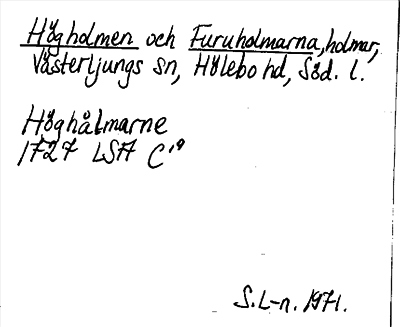 Högholmen och Furuholmarna, holmar,
Västerljungs sn, Hölebo hd, Söd. l.
Höghålmarne
1727 LSA C¹⁹
S.L-n. 1971.